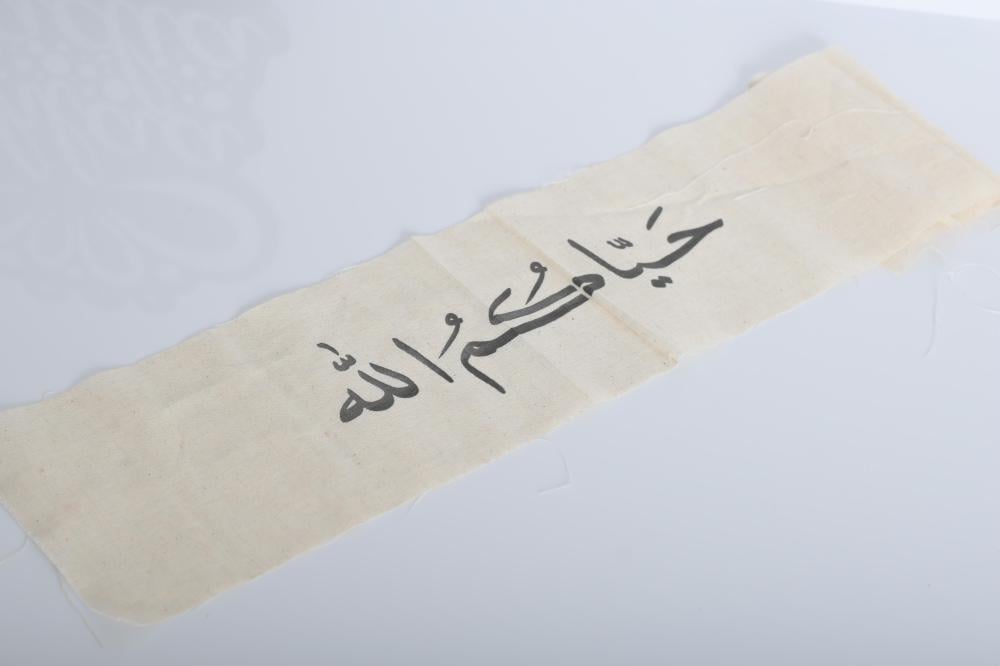 حَيَّاكُمُ اللَّه